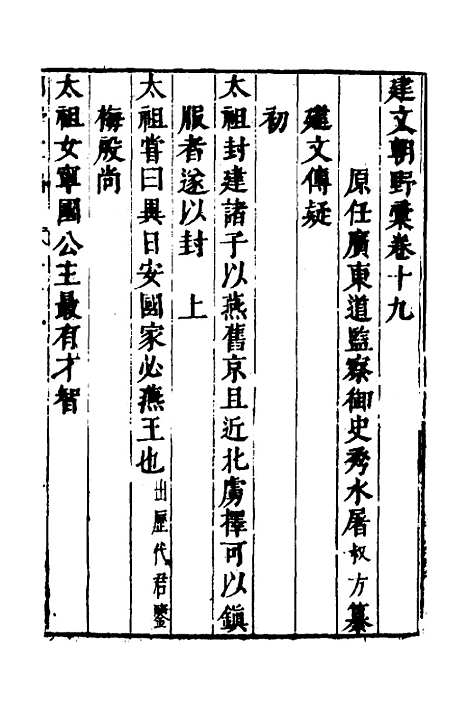 建文朝野彙卷十九
原任廣東道監察御史秀水屠叔方纂
建文傳疑
初
太祖封建諸子以燕舊京且近北虜擇可以鎮
服者遂以封　上
太祖嘗曰異日安國家必燕王也出歷代君鑒
梅殷尚
太祖女寧國公主最有才智